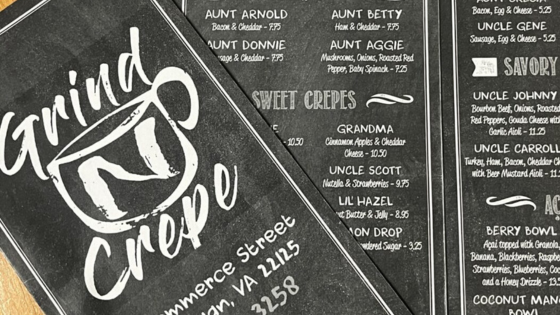 Grind
N
Crepe
Commerce Street
VA 22125
3258
AUNT ARNOLD
Bacon & Cheddar - 7.75
AUNT DONNIE
& Cheddar - 7.75
AUNT BETTY
Ham & Cheddar - 7.75
AUNT AGGIE
Mushrooms, Onions, Roasted Red
Pepper, Baby Spinach - 7.25
SWEET CREPES
- 10.50
GRANDMA
Cinnamon Apples & Cheddar
Cheese - 10.50
UNCLE SCOTT
Nutella & Strawberries - 9.75
LIL' HAZEL
Butter & Jelly - 8.95
DROP
Sugar - 3.25
Bacon, Egg & Cheese - 5.25
UNCLE GENE
Sausage, Egg & Cheese - 5.25
SAVORY
UNCLE JOHNNY
Bourbon Beef, Onions, Roasted
Red Peppers, Gouda Cheese
Garlic Aioli - 11.25
UNCLE CARROLL
Turkey, Ham, Bacon, Cheddar
with Beer Mustard Aioli
BERRY BOWL
Açaí topped with Granola,
Banana, Blackberries,
Strawberries, Blueberries,
and a Honey Drizzle
COCONUT
BOWL